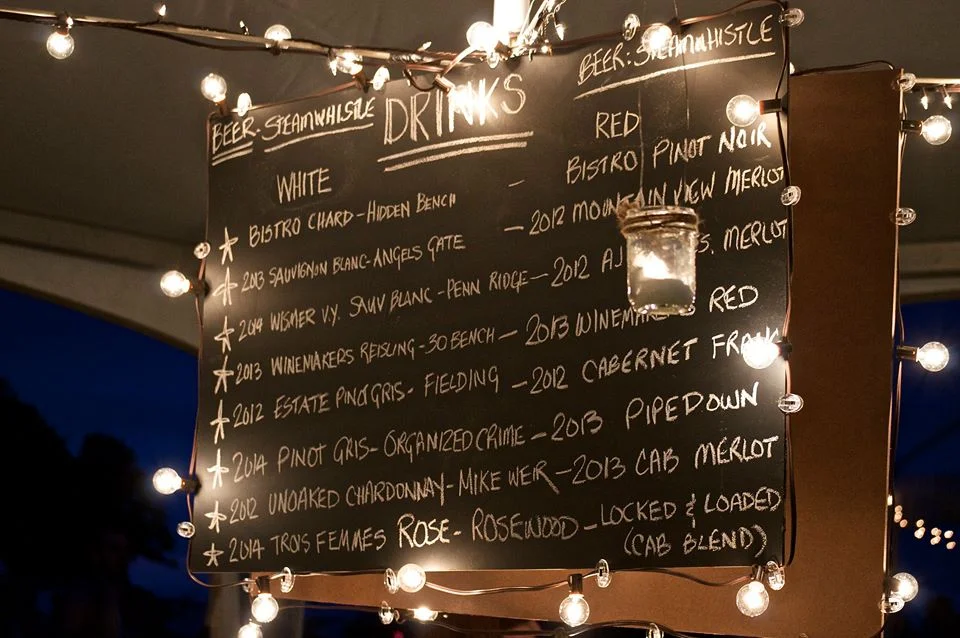 DRINKS
BEER-STEAMWHISTLE
WHITE
★ BISTRO CHARD-HIDDEN BENCH
★ 2013 SAUVIGNON BLANC-ANGELS GATE
★ 2014 WISMER V.Y. SAUV BLANC-PENN RIDGE
★ 2013 WINEMAKERS REISLING-30 BENCH
★ 2012 ESTATE PINOT GRIS- FIELDING
★ 2014 PINOT GRIS- ORGANIZED CRIME
★ 2012 UNOAKED CHARDONNAY-MIKE WEIR
★ 2014 TROIS FEMMES ROSE- ROSEWOOD
BEER: STEAMWHISTLE
RED
– BISTRO PINOT NOIR
– 2012 MOUNTAIN VIEW MERLOT
– 2012 MERLOT
– 2013 RED
– 2012 CABERNET
– 2013 PIPEDOWN
– 2013 CAB MERLOT
– LOCKED & LOADED
(CAB BLEND)